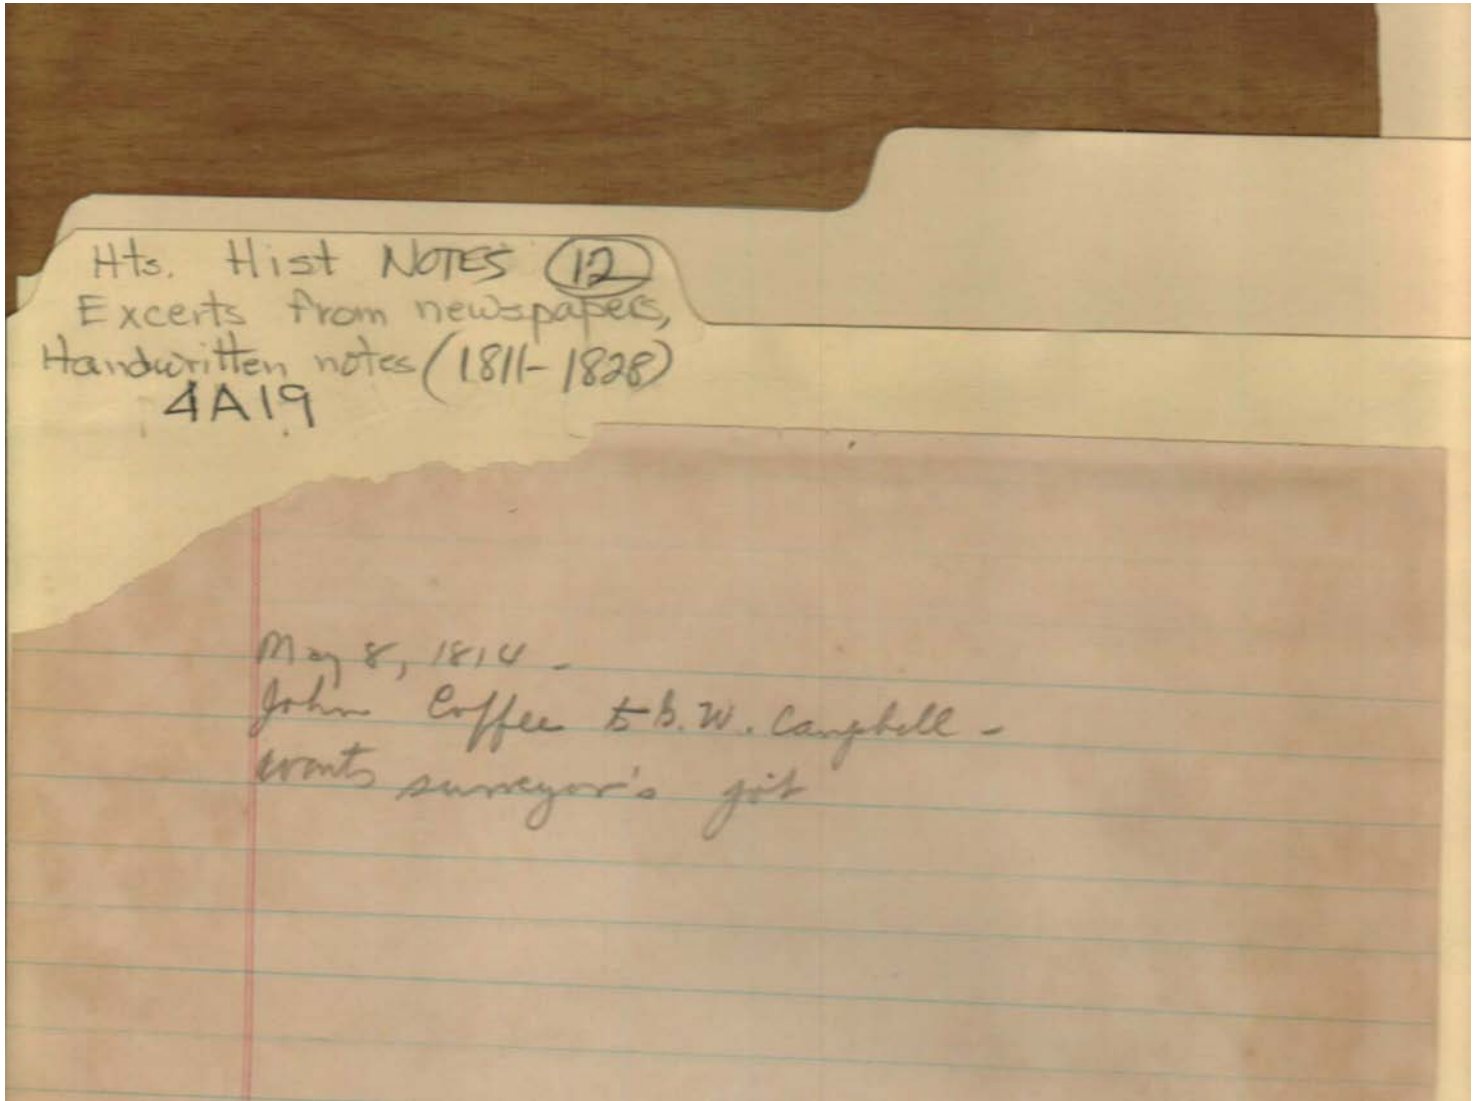 Hts. Hist NOTES 12
Excerts from newspapers,
Handwritten notes (1811-1828)
4A19
May 8, 1814 -
John Coffee to G. W. Campbell -
wants surveyor's job